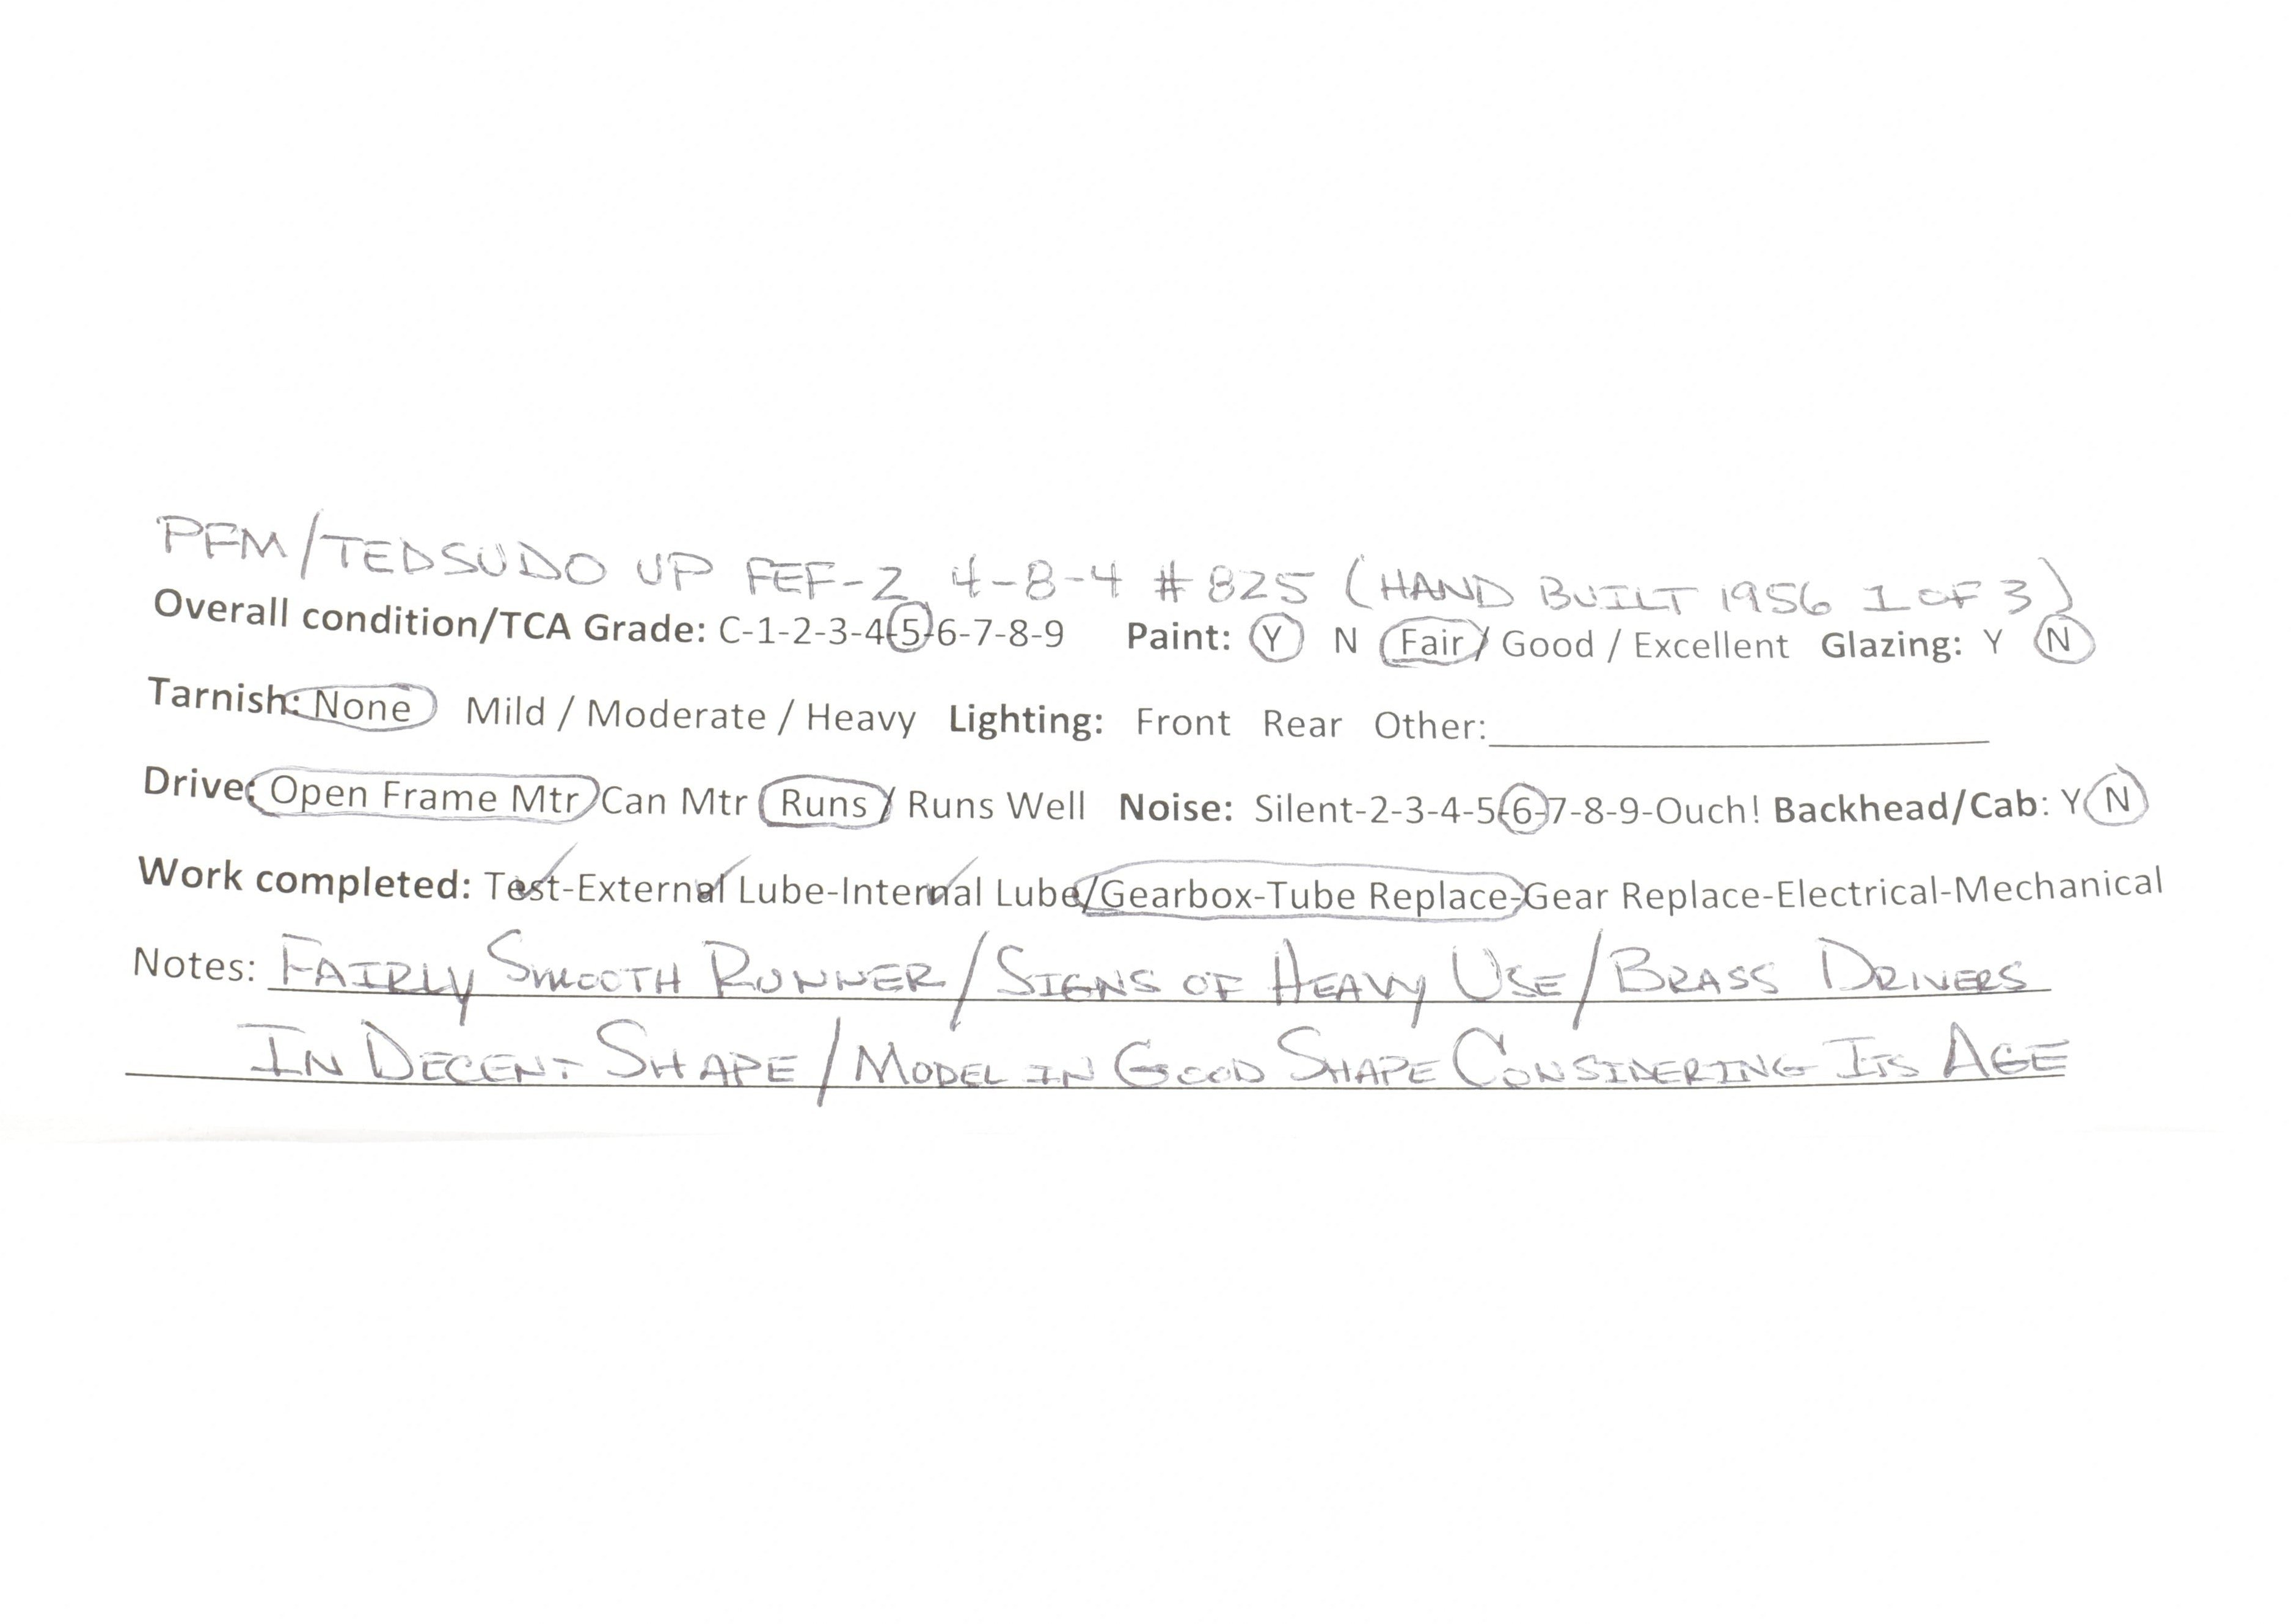 PFM/TEDSUDO UP FEF-2 4-8-4 #825 (HAND BUILT 1956 1 OF 3)
Overall condition/TCA Grade: C-1-2-3-4-5-6-7-8-9 Paint: Y N Fair / Good / Excellent Glazing: Y N
Tarnish: None Mild / Moderate / Heavy Lighting: Front Rear Other:
Drive: Open Frame Mtr Can Mtr Runs / Runs Well Noise: Silent-2-3-4-5-6-7-8-9-Ouch! Backhead/Cab: Y N
Work completed: Test-External Lube-Internal Lube/Gearbox-Tube Replace-Gear Replace-Electrical-Mechanical
Notes: FAIRLY SMOOTH RUNNER/SIGNS OF HEAVY USE/BRASS DRIVERS
IN DECENT SHAPE/MODEL IN GOOD SHAPE CONSIDERING ITS AGE